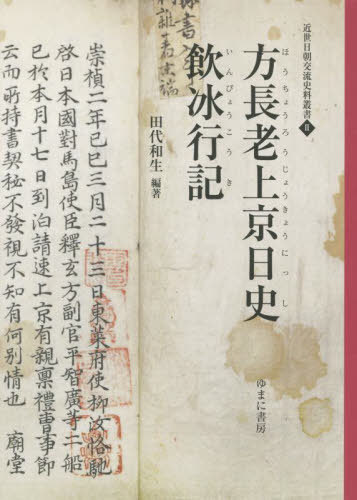 近世日朝交流史料叢書Ⅱ
方長老上京日史
ほうちょうろうじょうきょうにっし
飲冰行記
いんぴょうこうき
田代和生 編著
ゆまに書房
崇禎二年己巳三月二十三日東萊府使柳汝恪馳
啓日本國對馬島使臣釋玄方副官平智廣等二船
已於本月十七日到泊請速上京有親稟禮曹事節
云而所持書契秘不發視不知有何別情也 廟堂